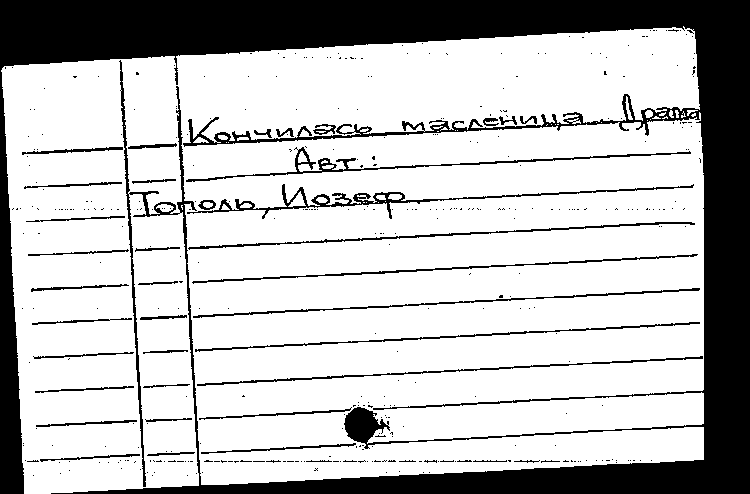 Кончилась масленица. Драма
Авт.:
Тополь, Иозеф